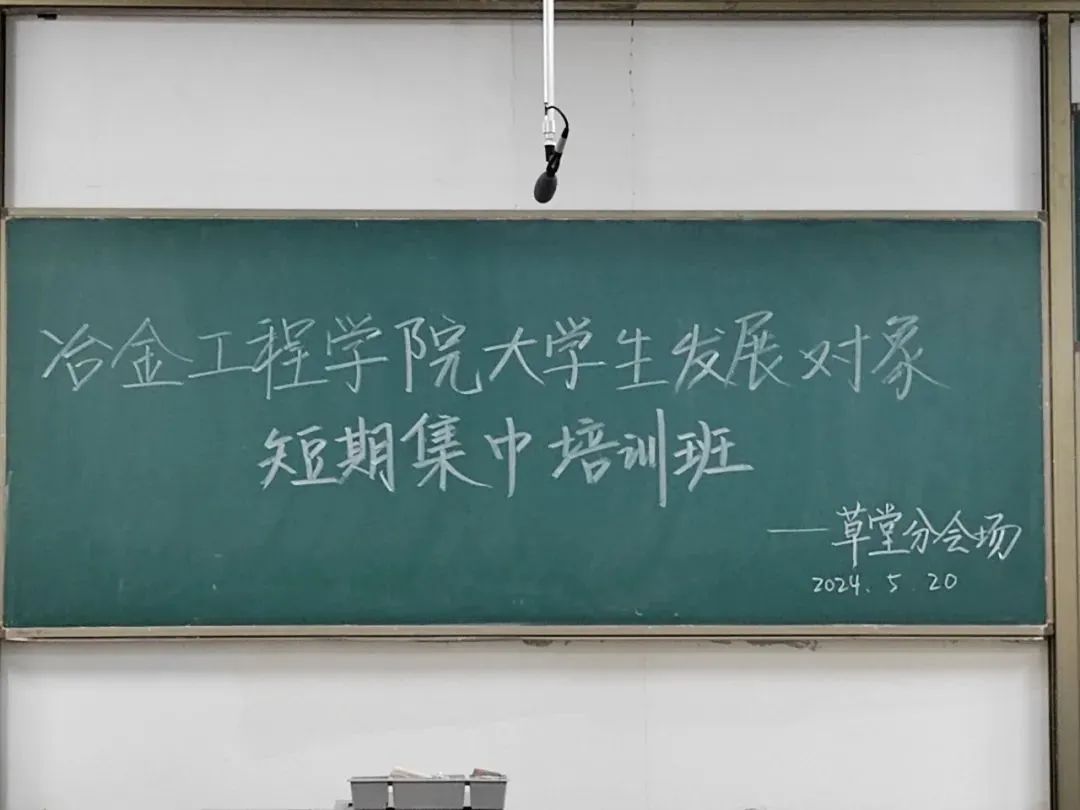 冶金工程学院大学生发展对象
短期集中培训班
——草堂分会场
2024.5.20